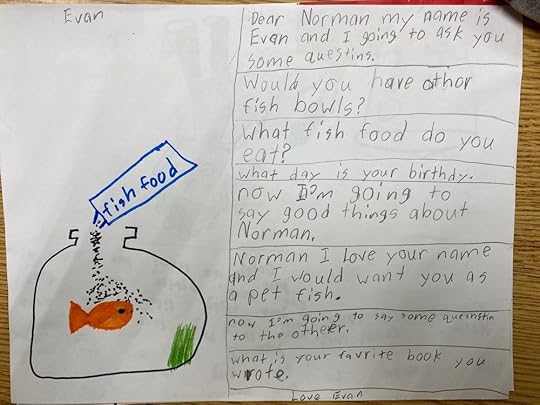 Evan
fish food
Dear Norman my name is
Evan and I going to ask you
some questins.
Would you have othor
fish bowls?
What fish food do you
eat?
what day is your birthdy.
now I'm going to
say good things about
Norman.
Norman I Love your name
and I would want you as
a pet fish.
now I'm going to say some quesnstin
to the otheer.
what is your favrite book you
wrote.
Love Evan